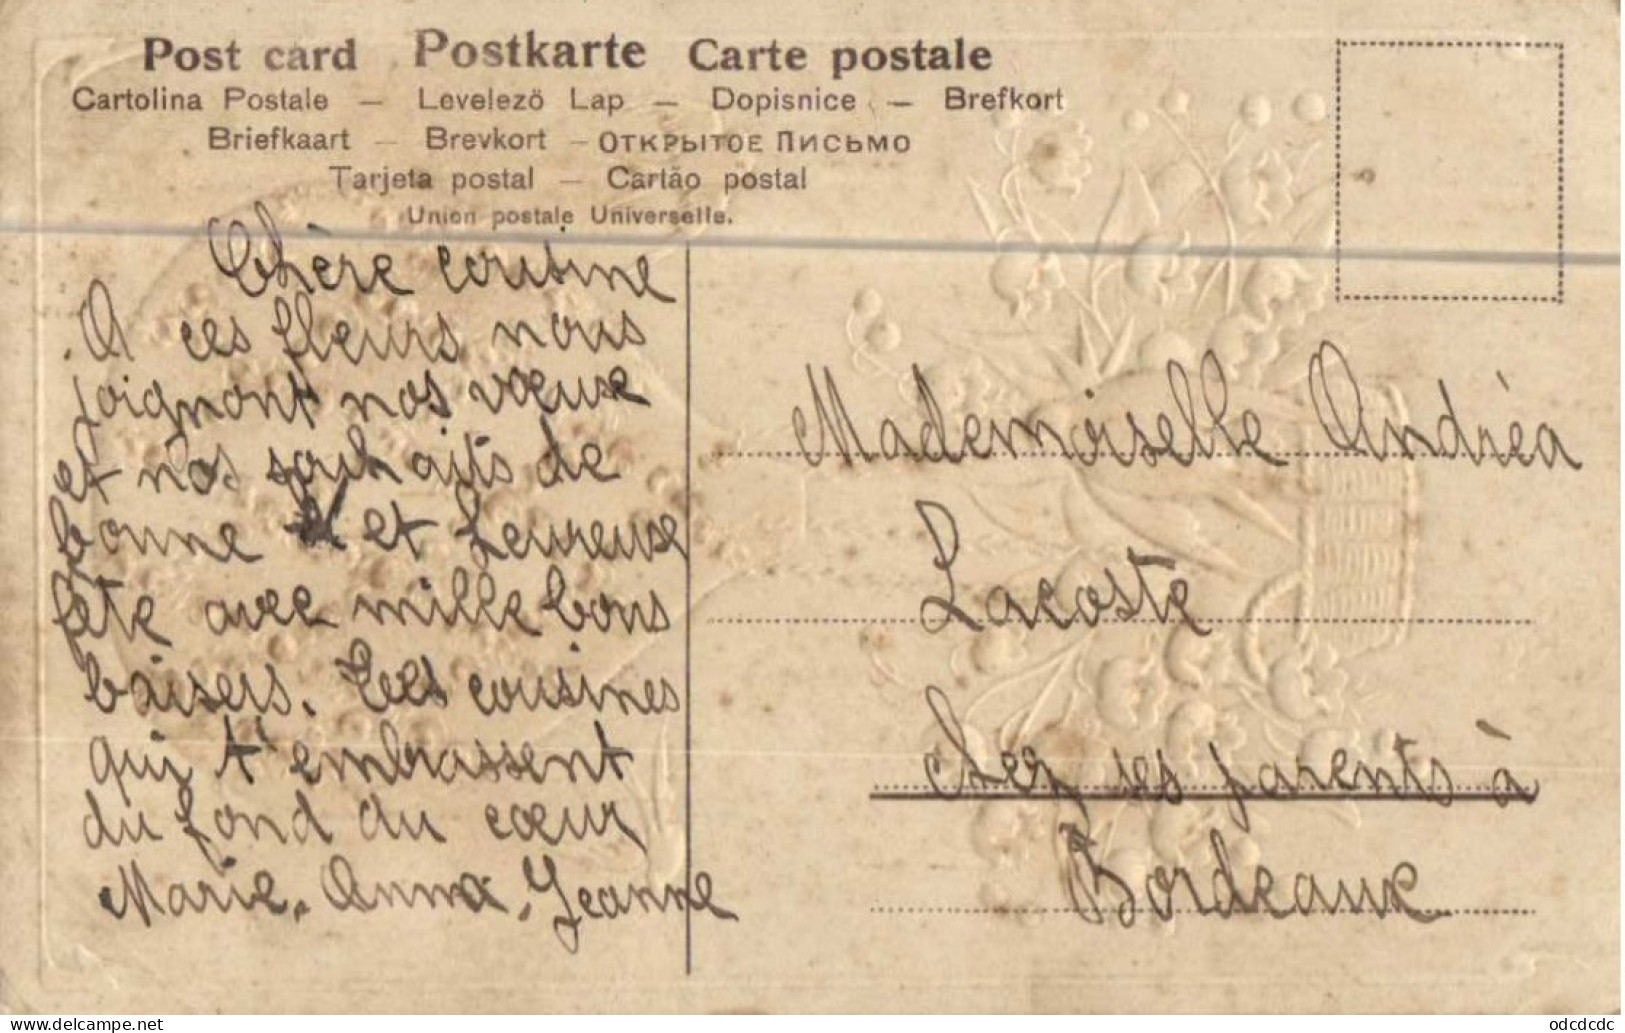 Post card Postkarte Carte postale
Cartolina Postale — Levelezö Lap — Dopisnice — Brefkort
Briefkaart — Brevkort — Открытое Письмо
Tarjeta postal — Cartão postal
Union postale Universelle.
Chère cousine
A ces fleurs nous
joignont nos vœux
et nos souhaits de
bonne et heureuse
fête avec mille bons
baisers. Tes cousines
qui t'embrassent
du fond du cœur
Marie. Anna. Jeanne
Mademoiselle Andréa
Lacoste
chez ses parents à
Bordeaux
odcdcdc